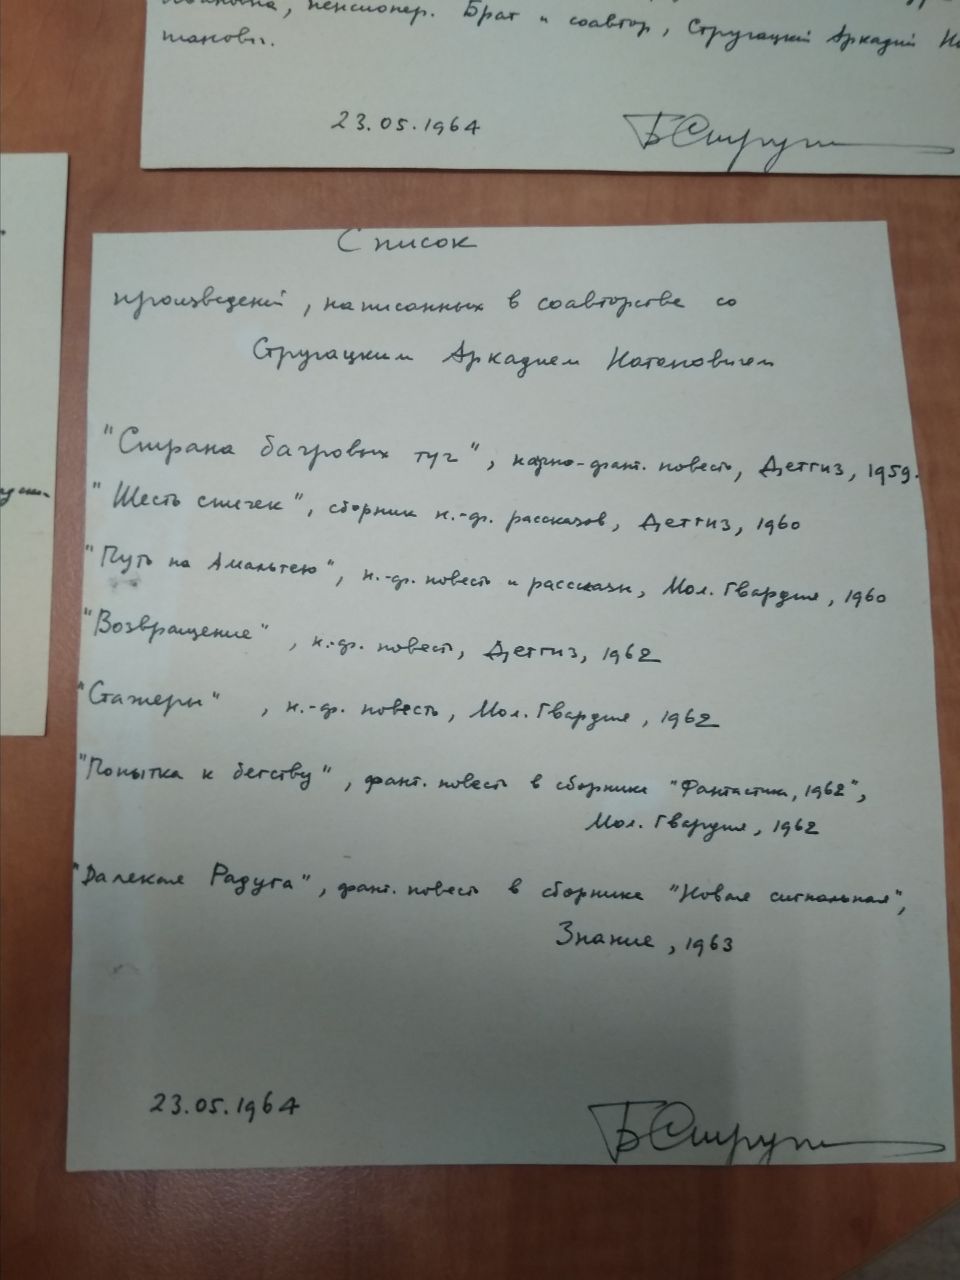 пенсионер. Брат и соавтор, Стругацкий Аркадий
23.05.1964
БСтруг
Список
произведений, написанных в соавторстве со
Стругацким Аркадием Натановичем
"Страна багровых туч", научно-фант. повесть, Детгиз, 1959.
"Шесть спичек", сборник н.-ф. рассказов, Детгиз, 1960
"Путь на Амальтею", н.-ф. повесть и рассказы, Мол. Гвардия, 1960
"Возвращение", н.-ф. повесть, Детгиз, 1962
"Стажеры", н.-ф. повесть, Мол. Гвардия, 1962
"Попытка к бегству", фант. повесть в сборнике "Фантастика, 1962",
Мол. Гвардия, 1962
"Далекая Радуга", фант. повесть в сборнике "Новая сигнальная",
Знание, 1963
23.05.1964
БСтруг